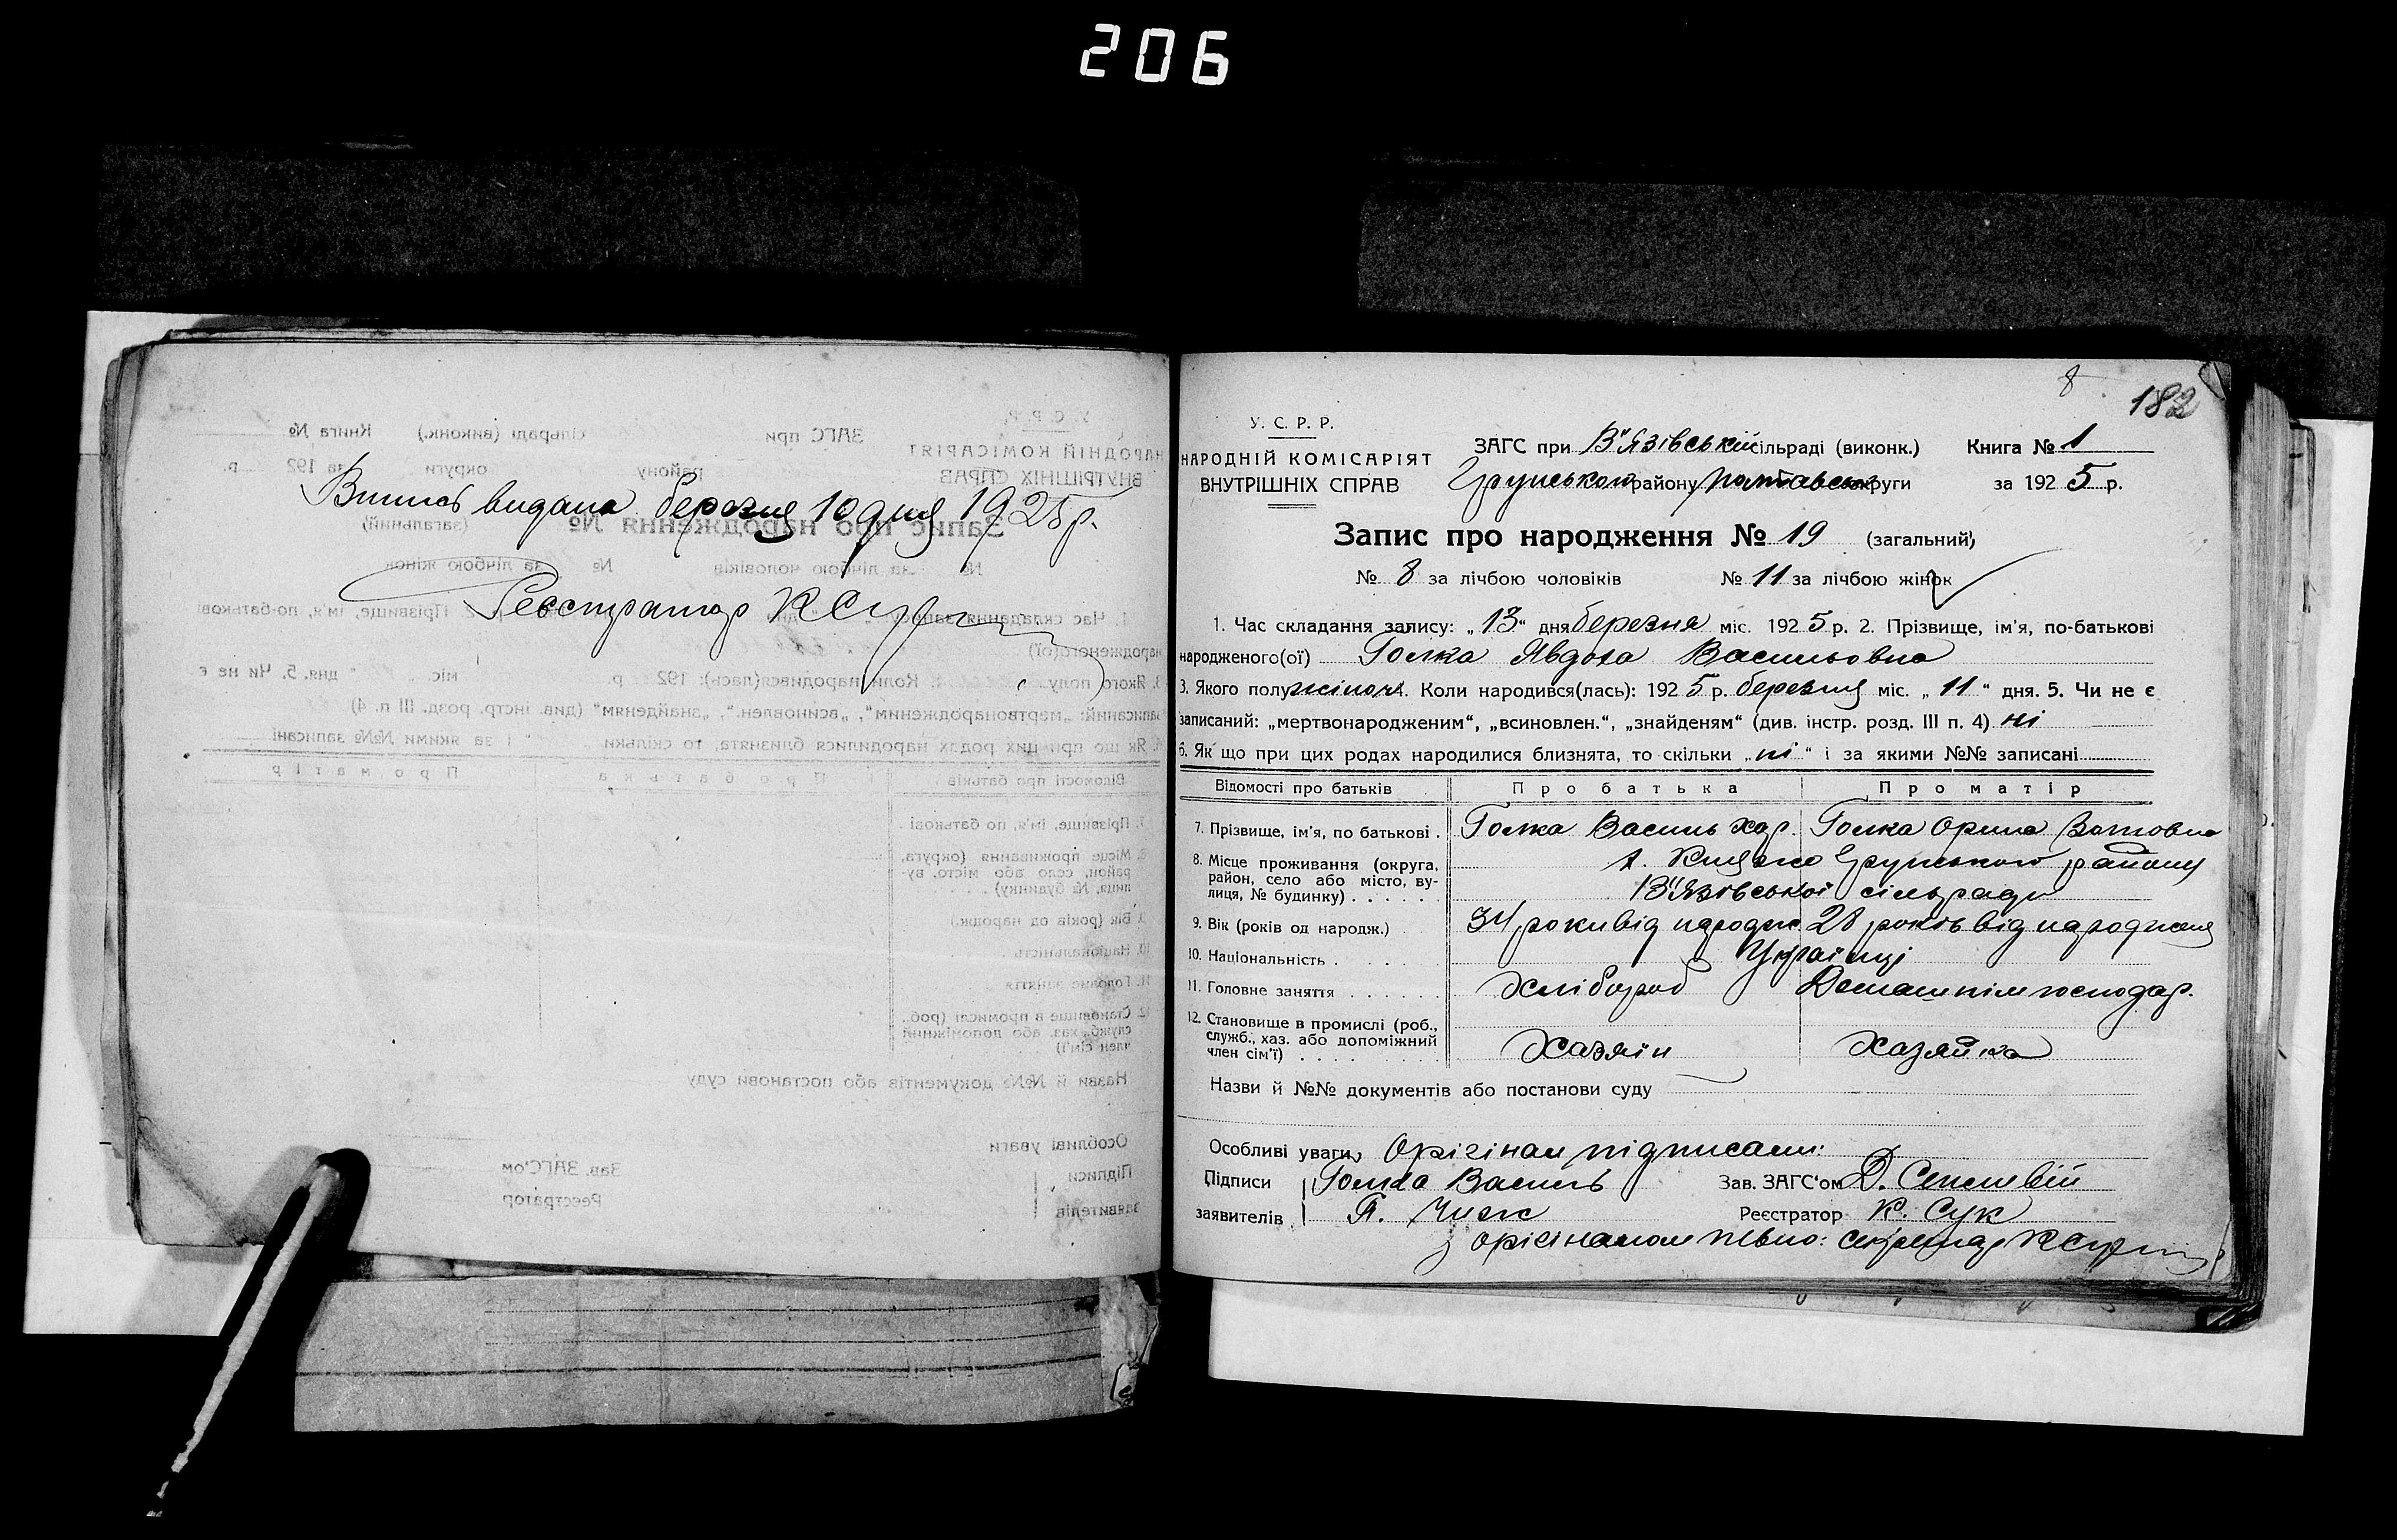 206
Витись видана березня 10 дня 1925 р.
Реєстратор К Сук
8
182
У. С. Р. Р.
НАРОДНІЙ КОМІСАРІЯТ
ВНУТРІШНІХ СПРАВ
ЗАГС при В'язівській сільраді (виконк.) Книга № 1
Грунського району Полтавськ округи за 1925 р.
Запис про народження № 19 (загальний)
№ 8 за лічбою чоловіків № 11 за лічбою жінок
1. Час складання запису: „13“ дня березня міс. 1925 р. 2. Прізвище, ім'я, по-батькові
народженого(ої) Голка Явдоха Васильовна
3. Якого полу жіноч. 4. Коли народився(лась): 1925 р. березня міс. „11“ дня. 5. Чи не є
записаний: „мертвонародженим“, „всиновлен.“, „знайденям“ (див. інстр. розд. III п. 4) ні
6. Як що при цих родах народилися близнята, то скільки „ні“ і за якими №№ записані
Відомості про батьків Про батька Про матір
7. Прізвище, ім'я, по батькові . Голка Василь Хар. Голка Орина
8. Місце проживання (округа, район, село або місто, вулиця, № будинку) . . . . . . х. Грунського району
В'язівської сільради
9. Вік (років од народж.) . 34 роки від народж. 28 років від народження
10. Національність . . . . . Українці
11. Головне заняття . . . . . . Хлібороб Домашнім господар.
12. Становище в промислі (роб., служб., хаз. або допоміжний член сім'ї) . . . . . . . . Хазяїн Хазяйка
Назви й №№ документів або постанови суду
Особливі уваги, Орігінал підписали:
Підписи Голка Василь Зав. ЗАГС'ом Д.
заявителів П. Чиж Реєстратор К. Сук
з орігіналом певно: секретар К Сук